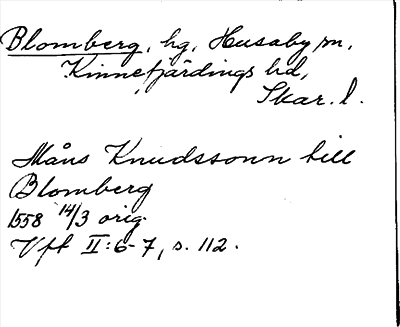 Blomberg, hg, Husaby sn,
Kinnefjärdings hd,
Skar. l.
Måns Knudssonn till
Blomberg
1558 14/3 orig.
Vft II:6-7, s. 112.